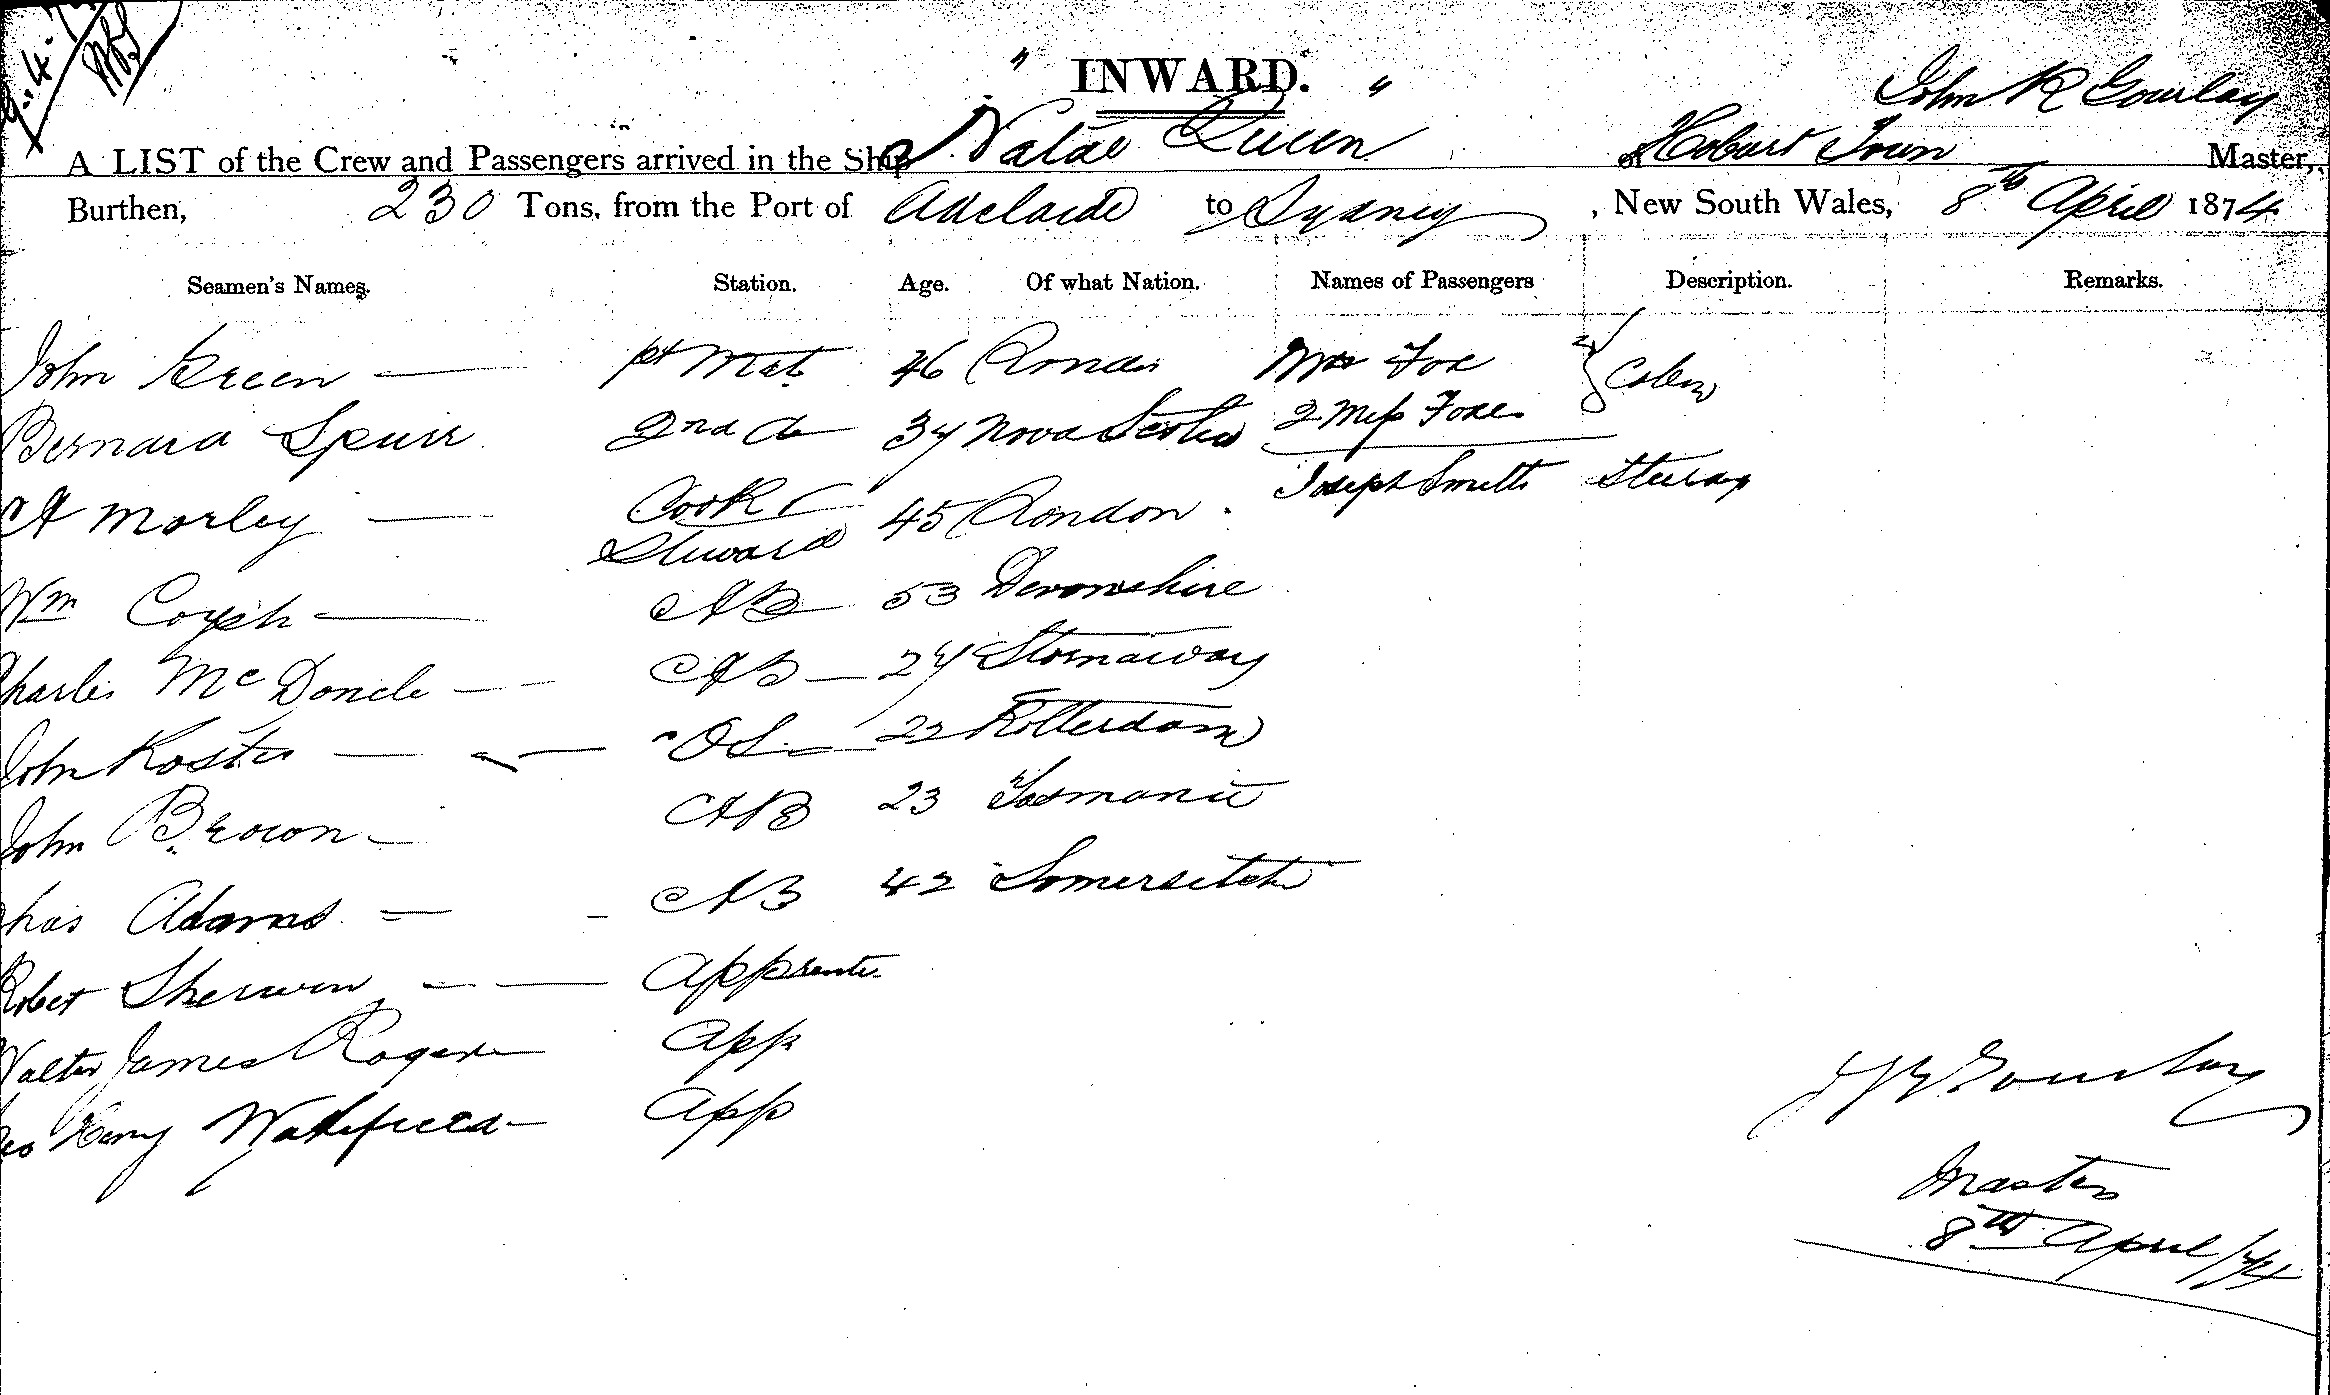 " INWARD. "
John R Gourlay
A LIST of the Crew and Passengers arrived in the Ship Natal Queen of Hobart Town Master,
Burthen, 230 Tons, from the Port of Adelaide to Sydney, New South Wales, 8th April 1874
Seamen's Names. Station. Age. Of what Nation. Names of Passengers Description. Remarks.
John Green Mate 46 London Mrs Fox Cabin
Bernard Spurr 2nd do 37 Nova Scotia 2 Miss Foxes
A Morley Cook & Steward 45 London Joseph Smith Steerage
Wm AB 53 Devonshire
Charles McDonele AB 27 Stornaway
John Koster OS 22 Rotterdam
John Brown AB 23 Tasmania
Chas Adams AB 42 Somersetsh
Robert Sherwin Apprente
Walter James Rogers App
Geo Henry Wakefield App
J R Gourlay
Master
8th April/74